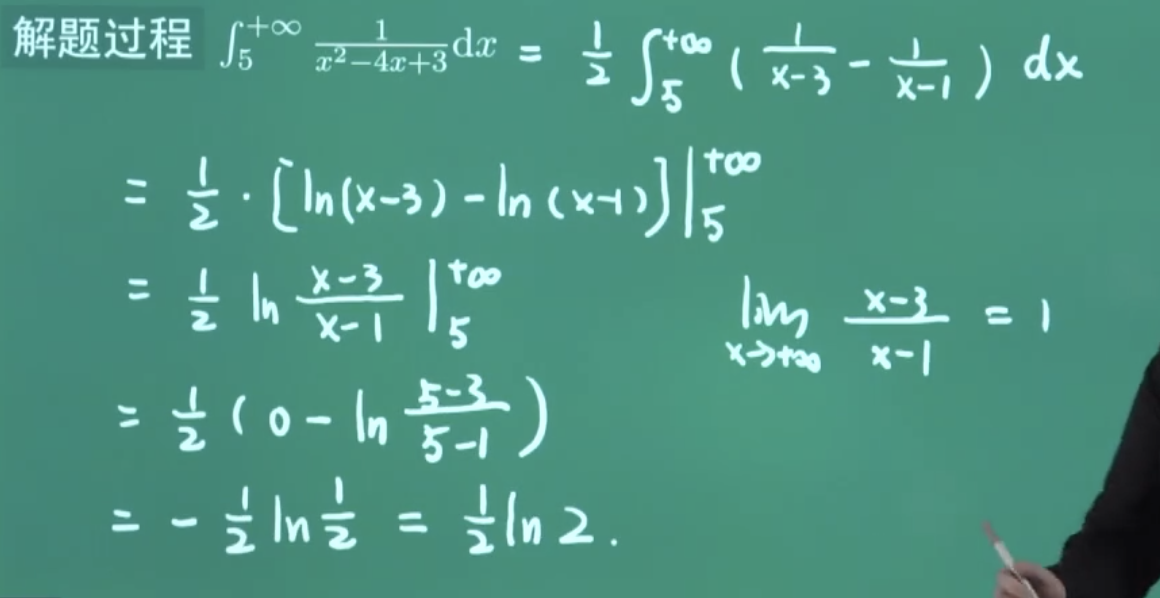 解题过程 ∫_5^{+∞} 1/(x²−4x+3) dx = 1/2 ∫_5^{+∞} ( 1/(x−3) − 1/(x−1) ) dx
= 1/2 · [ln(x−3) − ln(x−1)] |_5^{+∞}
= 1/2 ln (x−3)/(x−1) |_5^{+∞}
lim_{x→+∞} (x−3)/(x−1) = 1
= 1/2 ( 0 − ln (5−3)/(5−1) )
= − 1/2 ln 1/2 = 1/2 ln 2 .